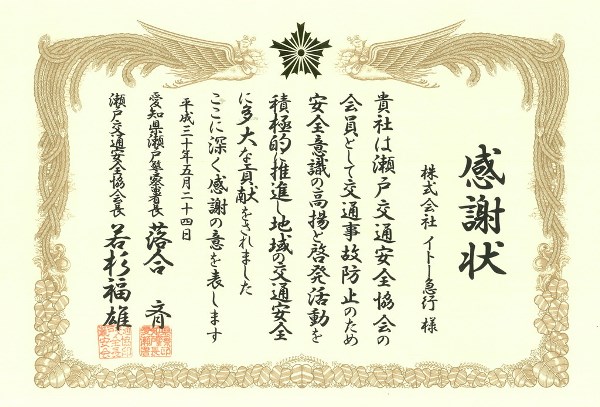 感謝状
株式会社 イトー急行 様
貴社は瀬戸交通安全協会の
会員として交通事故防止のため
安全意識の高揚と啓発活動を
積極的に推進し地域の交通安全
に多大な貢献をされました
ここに深く感謝の意を表します
平成三十年五月二十四日
愛知県瀬戸警察署長 落合 斉
瀬戸交通安全協会長 若杉福雄